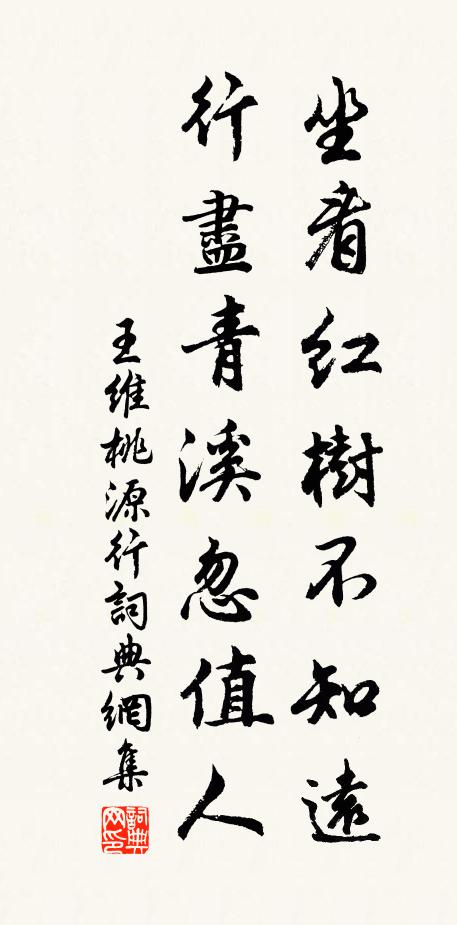 坐看紅樹不知遠
行盡青溪忽值人
王維桃源行詞典網集
詞典
网印